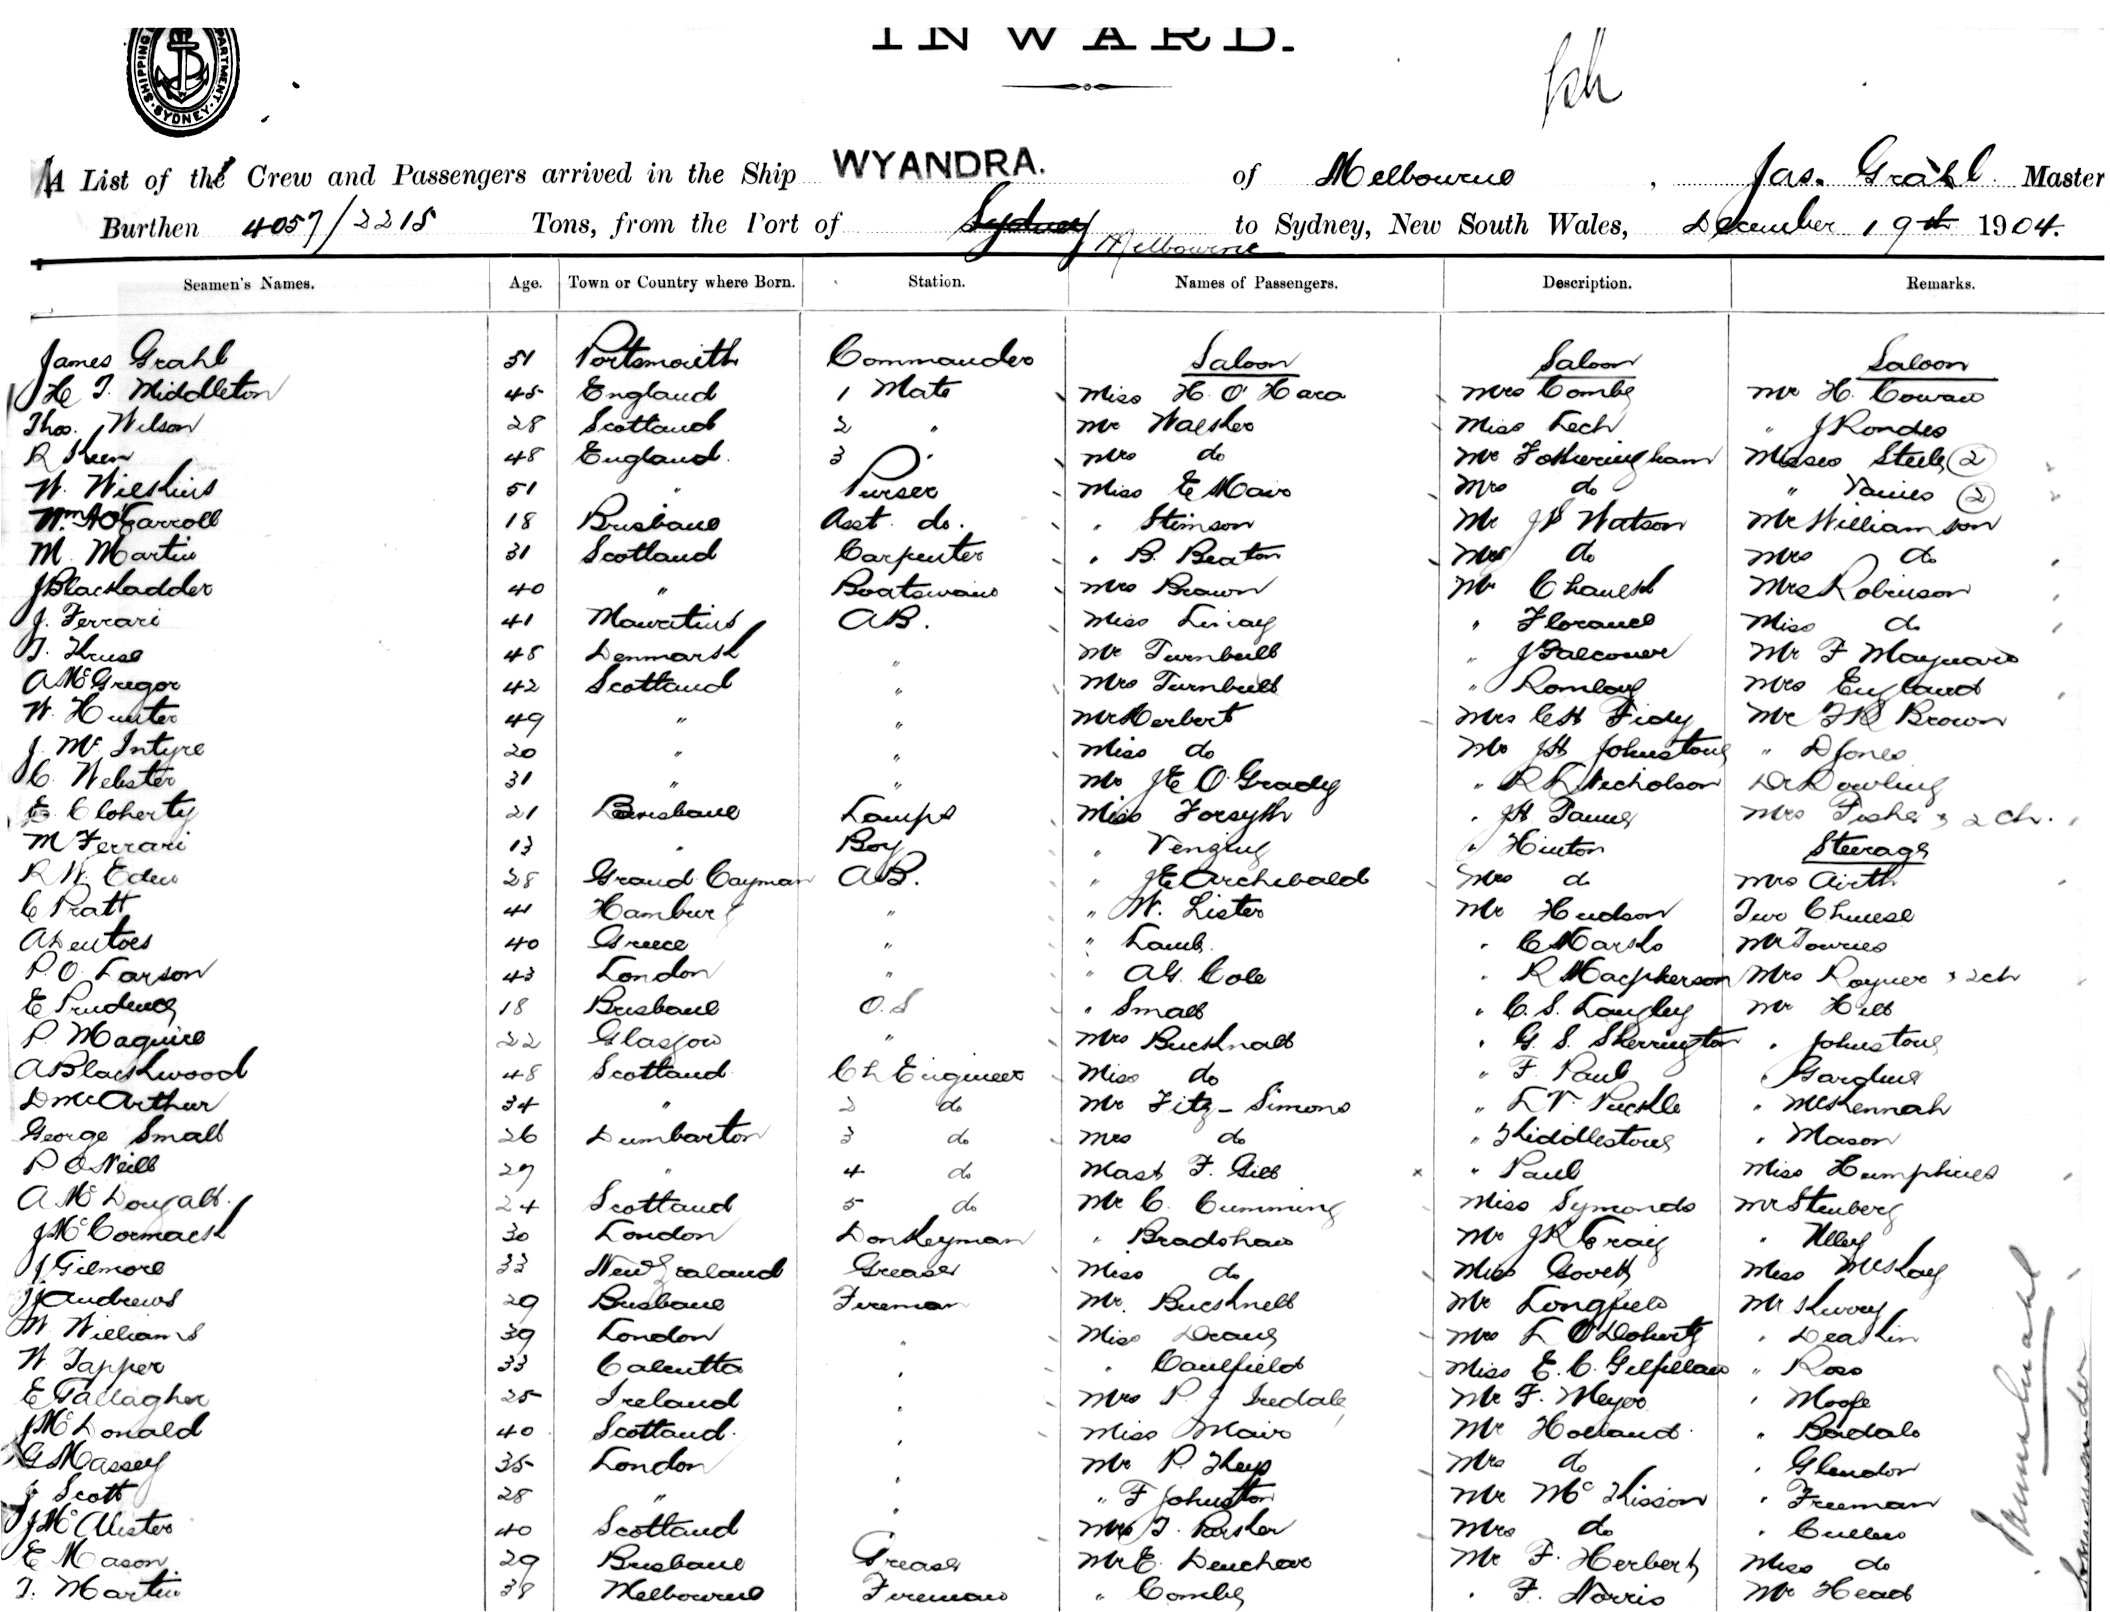 SHIPPING DEPARTMENT. SYDNEY
INWARD.
A List of the Crew and Passengers arrived in the Ship WYANDRA. of Melbourne, Jas. Grahl Master
Burthen 4057/2215 Tons, from the Port of Sydney Melbourne to Sydney, New South Wales, December 19th 1904.
Seamen's Names. Age. Town or Country where Born. Station. Names of Passengers. Description. Remarks.
James Grahl 51 Portsmouth Commander Saloon Saloon Saloon
H T. Middleton 45 England 1 Mate Miss H. O'Hara Mrs Combe Mr H. Cowan
Thos. Wilson 28 Scotland 2 " Mr Walker Miss Lech " J Rondes
R Keen 48 England. 3 " Mrs do Mr Fotheringham Misses Steele (2)
W. Wilkins 51 " Purser Miss E Mair Mrs do " (2)
Wm Carroll 18 Brisbane Asst. do. " Stimson Mr J P Watson Mr Williamson
M. Martin 31 Scotland Carpenter " B. Beaton Mrs do Mrs do
J Blackadder 40 " Boatswain Mrs Brown Mr Mrs Robinson
J. Ferrari 41 Mauritius AB. Miss " Florance Miss do
T. Kruse 48 Denmark " Mr Turnbull " J Falconer Mr F Maynard
A McGregor 42 Scotland " Mrs Turnbull " Mrs England
W. Hunter 49 " " Mr Herbert Mrs CH Fidy Mr Brown
J. McIntyre 20 " " Miss do Mr JH Johnstone " D Jones
C. Webster 31 " " Mr JE O'Grady " R Nicholson Dr Dowling
E. Cloherty 21 Brisbane Lamps Miss Forsyth " JH Mrs Fisher & 2 ch.
M Ferrari 13 " Boy " " Hinton Steerage
R W. Eden 28 Grand Cayman AB. " JE Archibald Mrs do Mrs Airth
C Pratt 41 Hamburg " " W. Lister Mr Hudson Two Chinese
A 40 Greece " " Lamb. " C Marks Mr Townes
P. O. Larson 43 London " " AG. Cole " R Macpherson Mrs Rayner & 2 ch
E Prudence 18 Brisbane O.S " Small " C. S. Langley Mr Hill
P. Maguire 22 Glasgow " Mrs Bucknall " G. S. Sherrington " Johnstone
A Blackwood 48 Scotland Ch Engineer Miss do " F. Paul " Gardine
D McArthur 34 " 2 do Mr Fitz-Simons " L V. Puckle " McKennah
George Small 26 Dumbarton 3 do Mrs do " Kiddlestone " Mason
P O'Neill 27 " 4 do Mast F. Gill " Paul Miss Humphries
A McDougall. 24 Scotland 5 do Mr C. Cumming Miss Symonds Mr Stenberg
J McCormack 30 London Donkeyman " Bradshaw Mr J R Craig "
J Gilmore 33 New Zealand Greaser Miss do Miss Govett Miss McKay
J Andrews 29 Brisbane Fireman Mr. Bucknell Mr Longfield Mr
W Williams 39 London " Miss Deane Mrs L O'Doherty " Deakin
W Tapper 33 Calcutta " " Caulfield Miss E. C. Gilfillan " Ross
E Gallagher 25 Ireland " Mrs P. J Iredale Mr F. Meyer "
J McDonald 40 Scotland. " Miss Mair Mr Holland "
G Massey 35 London " Mr P. Keys Mrs do " Glendon
J Scott 28 " " " F Johnston Mr McKisson " Freeman
J McAlister 40 Scotland " Mrs T. Parker Mrs do " Cullen
E Mason 29 Brisbane Greaser Mr E. Denchar Mr F. Herbert Miss do
T. Martin 38 Melbourne Fireman " Combe " F. Norris Mr Head
James Grahl
Commander